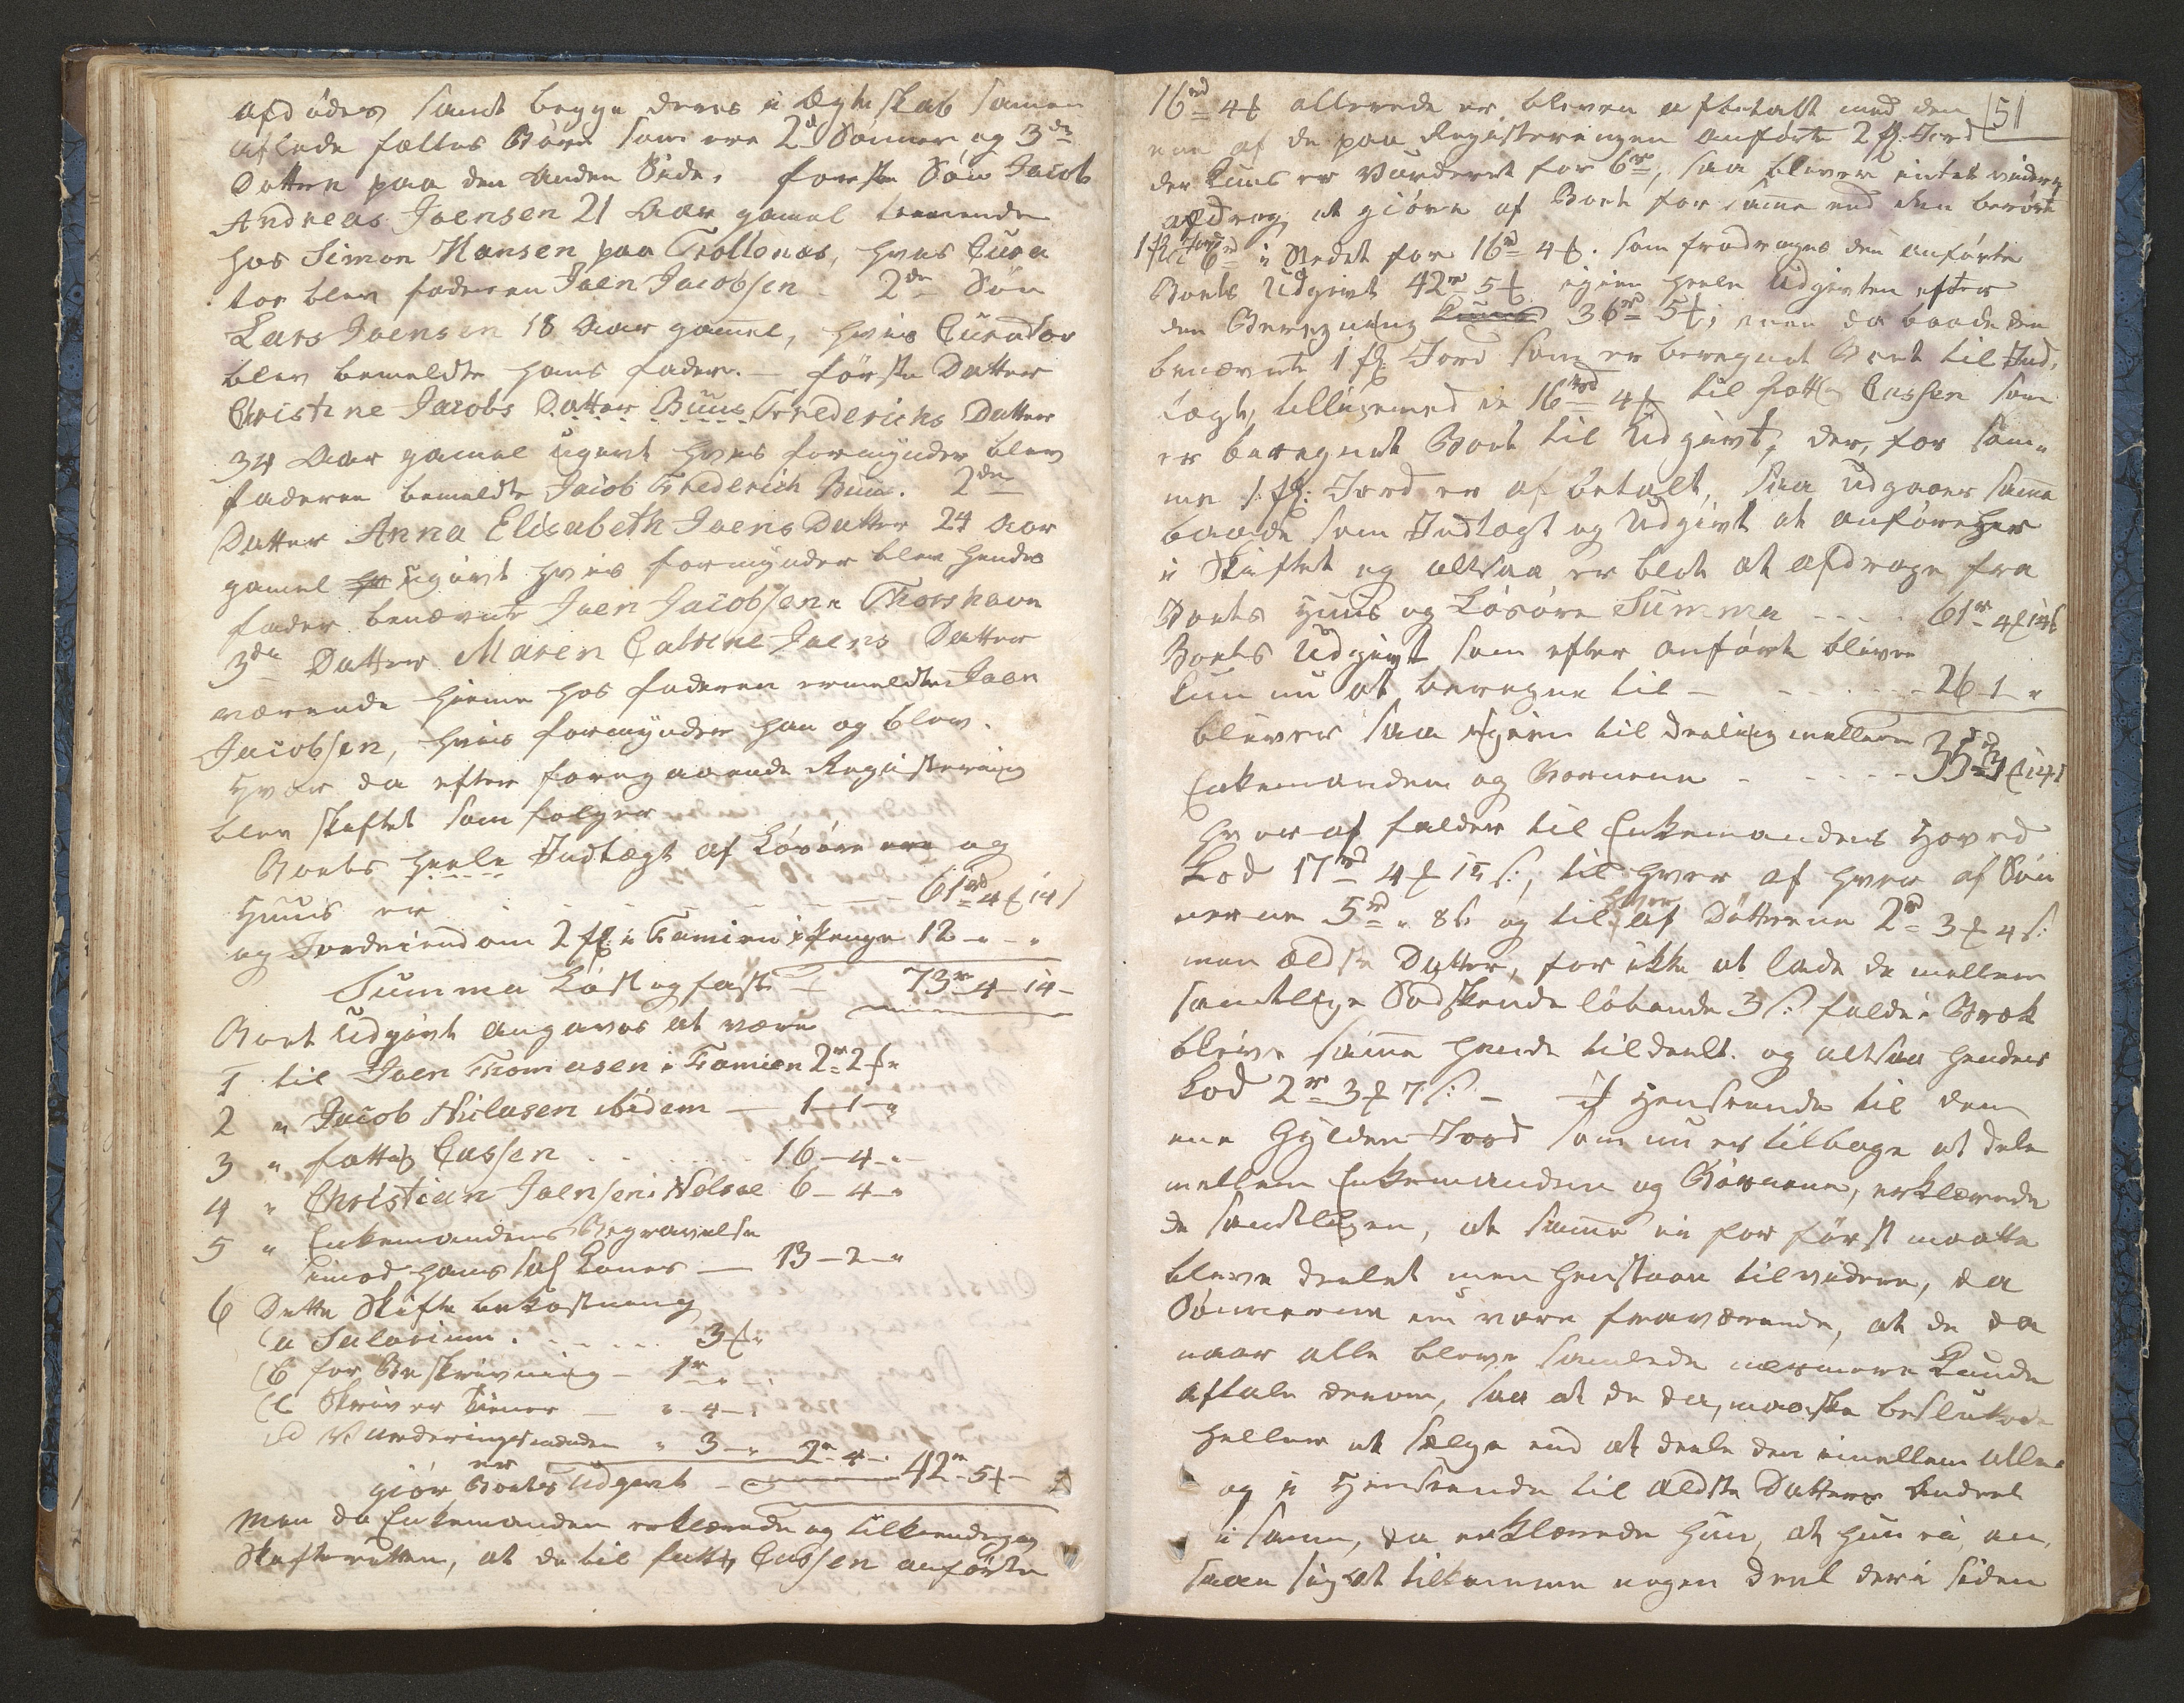 afdödes samt begge deres i Ægteskab samen
aflede fælles Börn som ere 2de Sönner og 3de
Dötten paa den anden Side. förste Sön Jacob
Andreas Joensen 21 Aar gamel tienende
hos Simon Hansen paa Trollonæs, hvis Cura
tor blev faderen Joen Jacobsen - 2den Sön
Lars Joensen 18 Aar gamel, hvis Curator
blev bemeldte hans fader. - förste Datter
Christine Jacobs Datter Buus Frederichs Datter
34 Aar gamel ugivt hvis formynder blev
faderen bemeldte Jacob Frederich Buus. 2den
Datter Anna Elisabeth Joens Datter 24 Aar
gamel ugivt hvis formynder blev hendes
fader benævnte Joen Jacobsen i Thorshavn
3die Datter Maren Catrine Joens Datter
værende hieme hos faderen ermeldte Joen
Jacobsen, hvis formynder han og blev.
Hvor da efter foregaaende Registering
blev skiftet som fölger
Boets heele Indtægt af Lösöre og
Huus er - - - 61rd 4 ƒ 14 s
og Jordeiendom 2 fl: i Famien i Penge 12 - " - "
Summa Löst og fast 73rd 4 - 14 -
Boet Udgivt angaves at være
1 til Joen Thomasen i Famien 2rd 2 ƒ "
2 " Jacob Niclasen ibidem - 1 - 1 - "
3 " fattig Cassen - - - 16 - 4 - "
4 " Christian Joensen i Nolsöe 6 - 4 - "
5 " Enkemandens Begravelse
imod hans sal Kones - 13 - 2 - "
6 Dette Skifte bekostning
(a Salarium. - - - 3 ƒ "
(b for Beskrivning - 1rd - " - "
(c Skriver tiener - " - 4 - "
(d Vurderingsmænden " 3 - " 2rd 4 - "
giör er Boets Udgivt - 42rd 5 ƒ -
Men da Enkemanden erklærede og tilkiendegav
Skifteretten, at de til fattig Cassen anförte
51
16rd 4 ƒ allerede er bleven afbetalt med den
ene af de paa Registeringen anförte 2 fl: Jord
der kuns er Vurderet for 6rd, saa bliver intet videre
afdrag at giöre af Boet for samme end den berörte
1 fl: Jord 6rd i Stedet for 16rd 4 ƒ. som fradrages den anförte
Boets Udgivt 42rd 5 ƒ igien heele Udgivten efter
den Beregning kuns 36rd 5 ƒ; men da baade den
benævnte 1 fl: Jord som er beregnet Boet til Ind,
tægt, tilligemed de 16rd 4 ƒ til fattig Cassen som
er beregnet Boet til Udgivt, der, for sam,,
me 1 fl: Jord er afbetalt, saa udgaaer samme
baade som Indtægt og Udgivt at anföre her
i Skiftet og altsaa er blot at afdrage fra
Boets Huus og Lösöre Summa - - - 61rd 4 ƒ 14 s
Boets Udgivt som efter anförte bliver
kun nu at beregne til - - - 26 - 1 - "
bliver saa igien til deeling mellem
Enkemanden og Börnene - - - 35rd 3 ƒ 14 s
hvoraf falder til Enkemandens Hoved
Lod 17rd 4 ƒ 15 s:, til hver af hver af Sön
nerne 5rd " 8 s og til hver af Döttrene 2rd 3 ƒ 4 s:
men ældste Datter, for ikke at lade de mellem
samtlige Södskende löbende 3 s: falde i Bræk
bleve samme hende tildeelt. og altsaa hendes
Lod 2rd 3 ƒ 7 s: - I Henseende til den
ene Gylden Jord som nu er tilbage at dele
mellem Enkemanden og Börnene, erklærede
de samtligen, at samme ei for först maatte
bleve deelet men henstaae tilvidere, da
Sönnerne nu vare fraværende, at de da
naar alle bleve samlede nærmere kunde
aftale derom, saa at de da, maaske besluttede
heller at sælge end at deele den imellem alle.
og i Henseende til ældste Datters Andeel
i samme, da erklærede hun, at hun ei an,
saae sig at tilkomme nogen deel deri siden